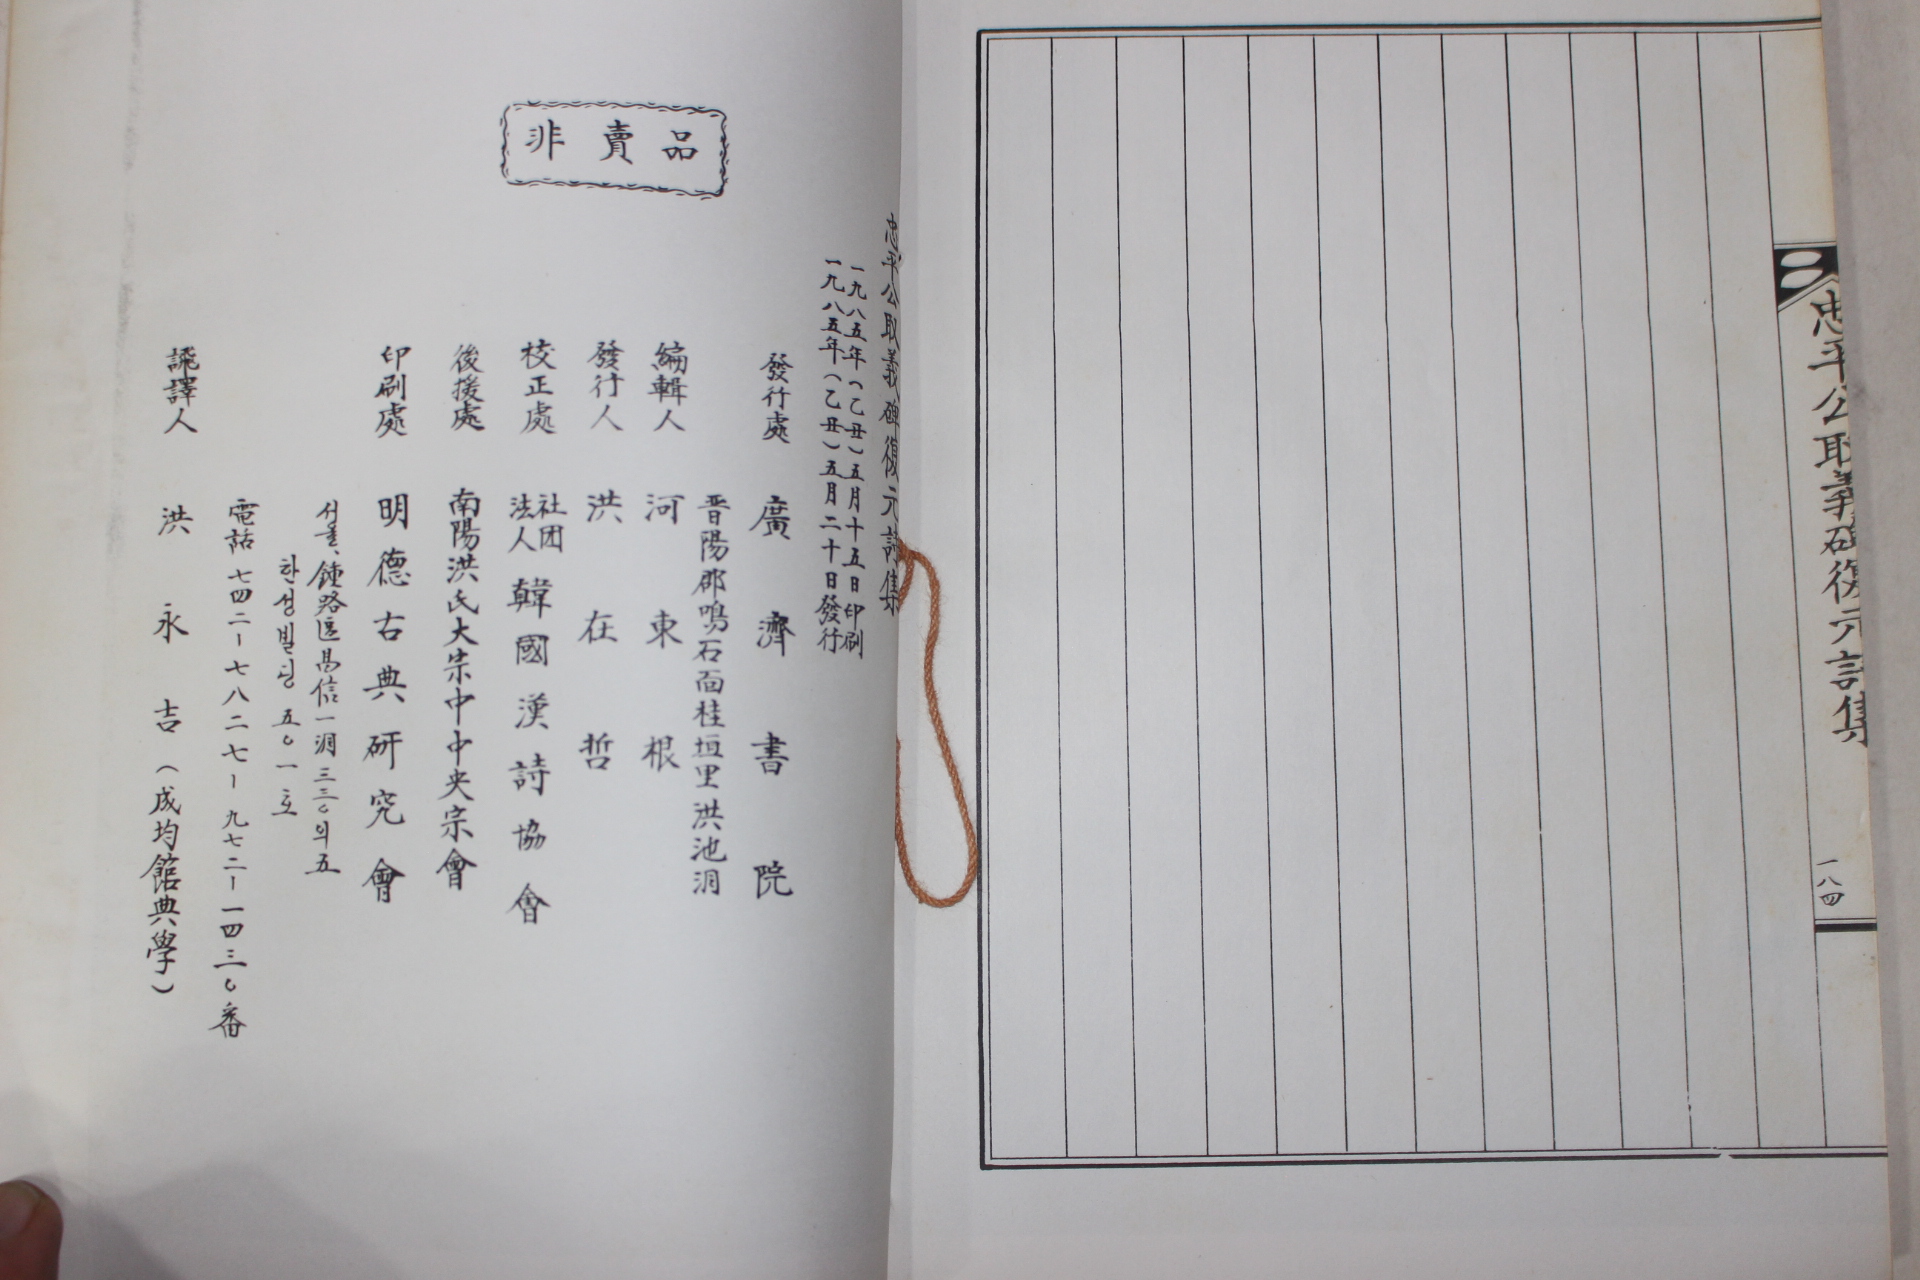 忠平公取義碑復元詩集
一八四
非賣品
忠平公取義碑復元詩集
一九八五年(乙丑)五月十五日印刷
一九八五年(乙丑)五月二十日發行
發行處 廣濟書院
晋陽郡鳴石面桂垣里洪池洞
編輯人 河東根
發行人 洪在哲
校正處 社団法人 韓國漢詩協會
後援處 南陽洪氏大宗中中央宗會
印刷處 明德古典研究會
서울、鍾路區昌信一洞三三○의五
한성빌딩 五○一호
電話 七四二ー七八二七ー九七二ー一四三○番
飜譯人 洪永吉(成均館典學)